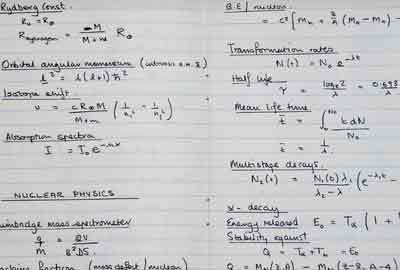 Rydberg Const.
R₀ = R∞
R_Hydrogen = M / (M + m) R∞
Orbital angular momentum
l² = l(l+1) ħ²
Isotope shift
υ = c R∞ M / (M + m) (1/n₁² - 1/n₂²)
Absorption spectra
I = I₀ e^-
NUCLEAR PHYSICS
mass spectrometer
q/m = 2V / B²
fraction (mass defect / nucleon)
B.E / nucleon
= c² [ Mₙ + (Mₙ - Mₙ) -
Transformation rates
N(t) = N₀ e^-λt
Half life
τ = logₑ2 / λ = 0.693 /
Mean life time
t̄ = ∫₀^N₀ t dN / N₀
t̄ = 1/λ
Multistage decays.
N₂(t) = N₁(0) λ₁ / (λ₂ - λ) ( e^-λ₁t -
α - decay
Energy released E₀ = Tα ( 1 +
Stability against
Q = Tα + Tb = E₀
Q =